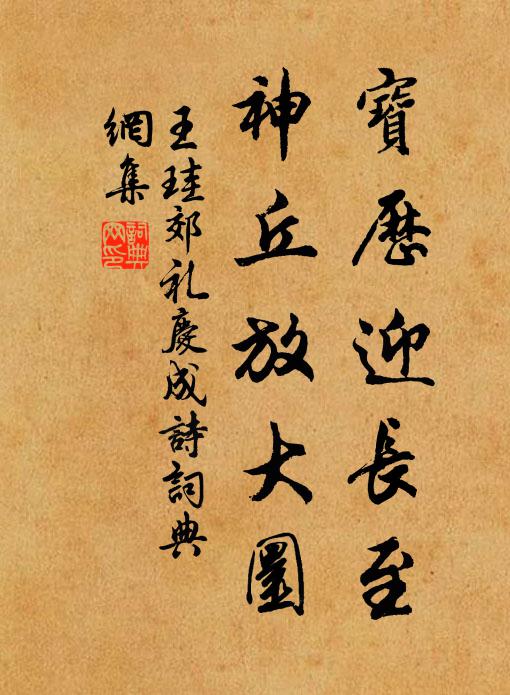 寶曆迎長至
神丘放大圜
王珪郊礼慶成詩詞典
網集
詞典
网印